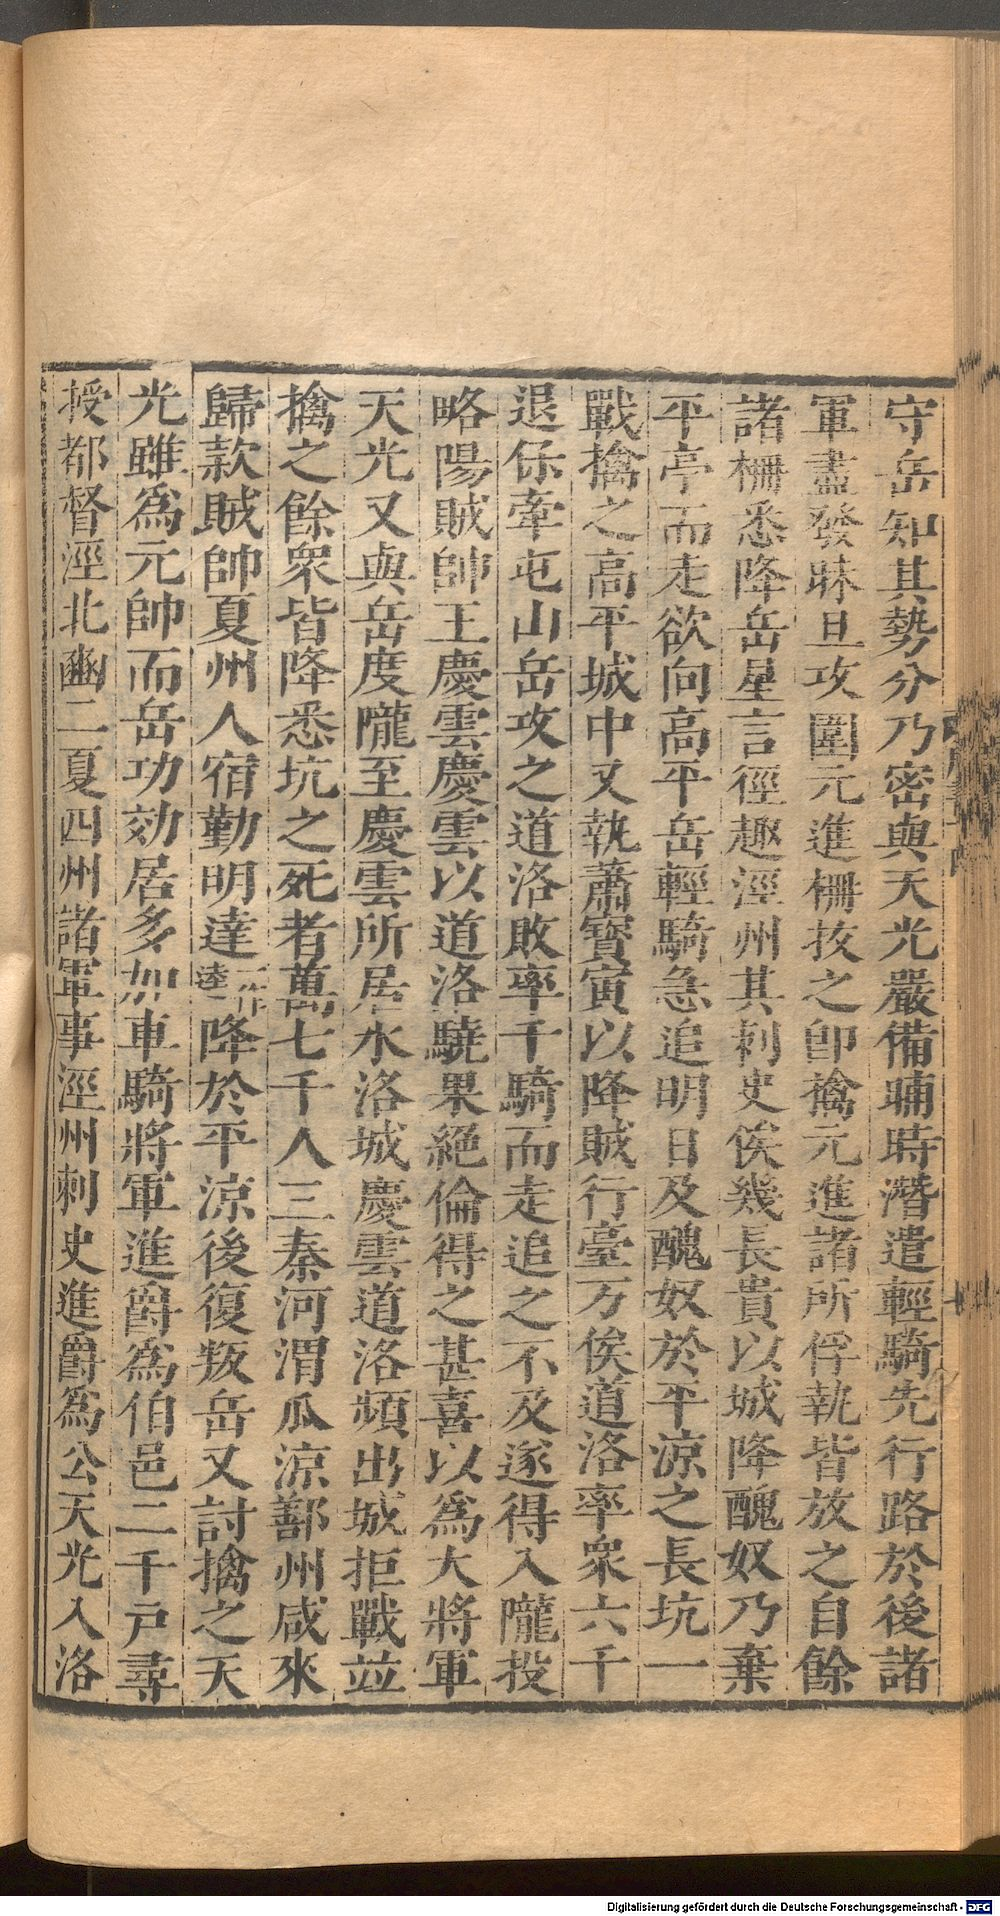 守岳知其勢分乃密與天光嚴備晡時潛遣輕騎先行路於後諸
軍盡發昧旦攻圍元進柵拔之卽擒元進諸所俘執皆放之自餘
諸柵悉降岳星言徑趣涇州其刺史俟幾長貴以城降醜奴乃棄
平亭而走欲向高平岳輕騎急追明日及醜奴於平涼之長坑一
戰擒之高平城中又執蕭寶寅以降賊行臺万俟道洛率衆六千
退保牽屯山岳攻之道洛敗率千騎而走追之不及遂得入隴投
略陽賊帥王慶雲慶雲以道洛驍果絕倫得之甚喜以爲大將軍
天光又與岳度隴至慶雲所居水洛城慶雲道洛頻出城拒戰並
擒之餘衆皆降悉坑之死者萬七千人三秦河渭瓜涼鄯州咸來
歸款賊帥夏州人宿勤明達一作逵降於平涼後復叛岳又討擒之天
光雖爲元帥而岳功効居多加車騎將軍進爵爲伯邑二千戸尋
授都督涇北豳二夏四州諸軍事涇州刺史進爵爲公天光入洛
Digitalisierung gefördert durch die Deutsche Forschungsgemeinschaft - DFG